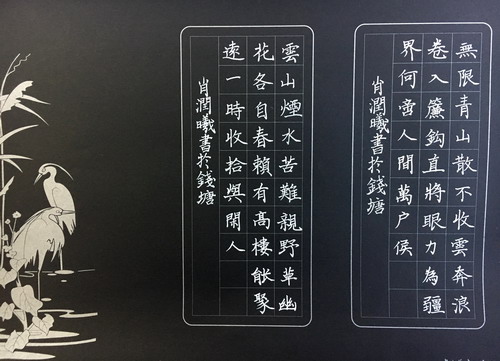 無限青山散不收雲奔浪
卷入簾鈎直將眼力為疆
界何啻人間萬户侯
肖潤曦書於錢塘
雲山煙水苦難親野草幽
花各自春賴有高樓能聚
遠一時收拾與閑人
肖潤曦書於錢塘